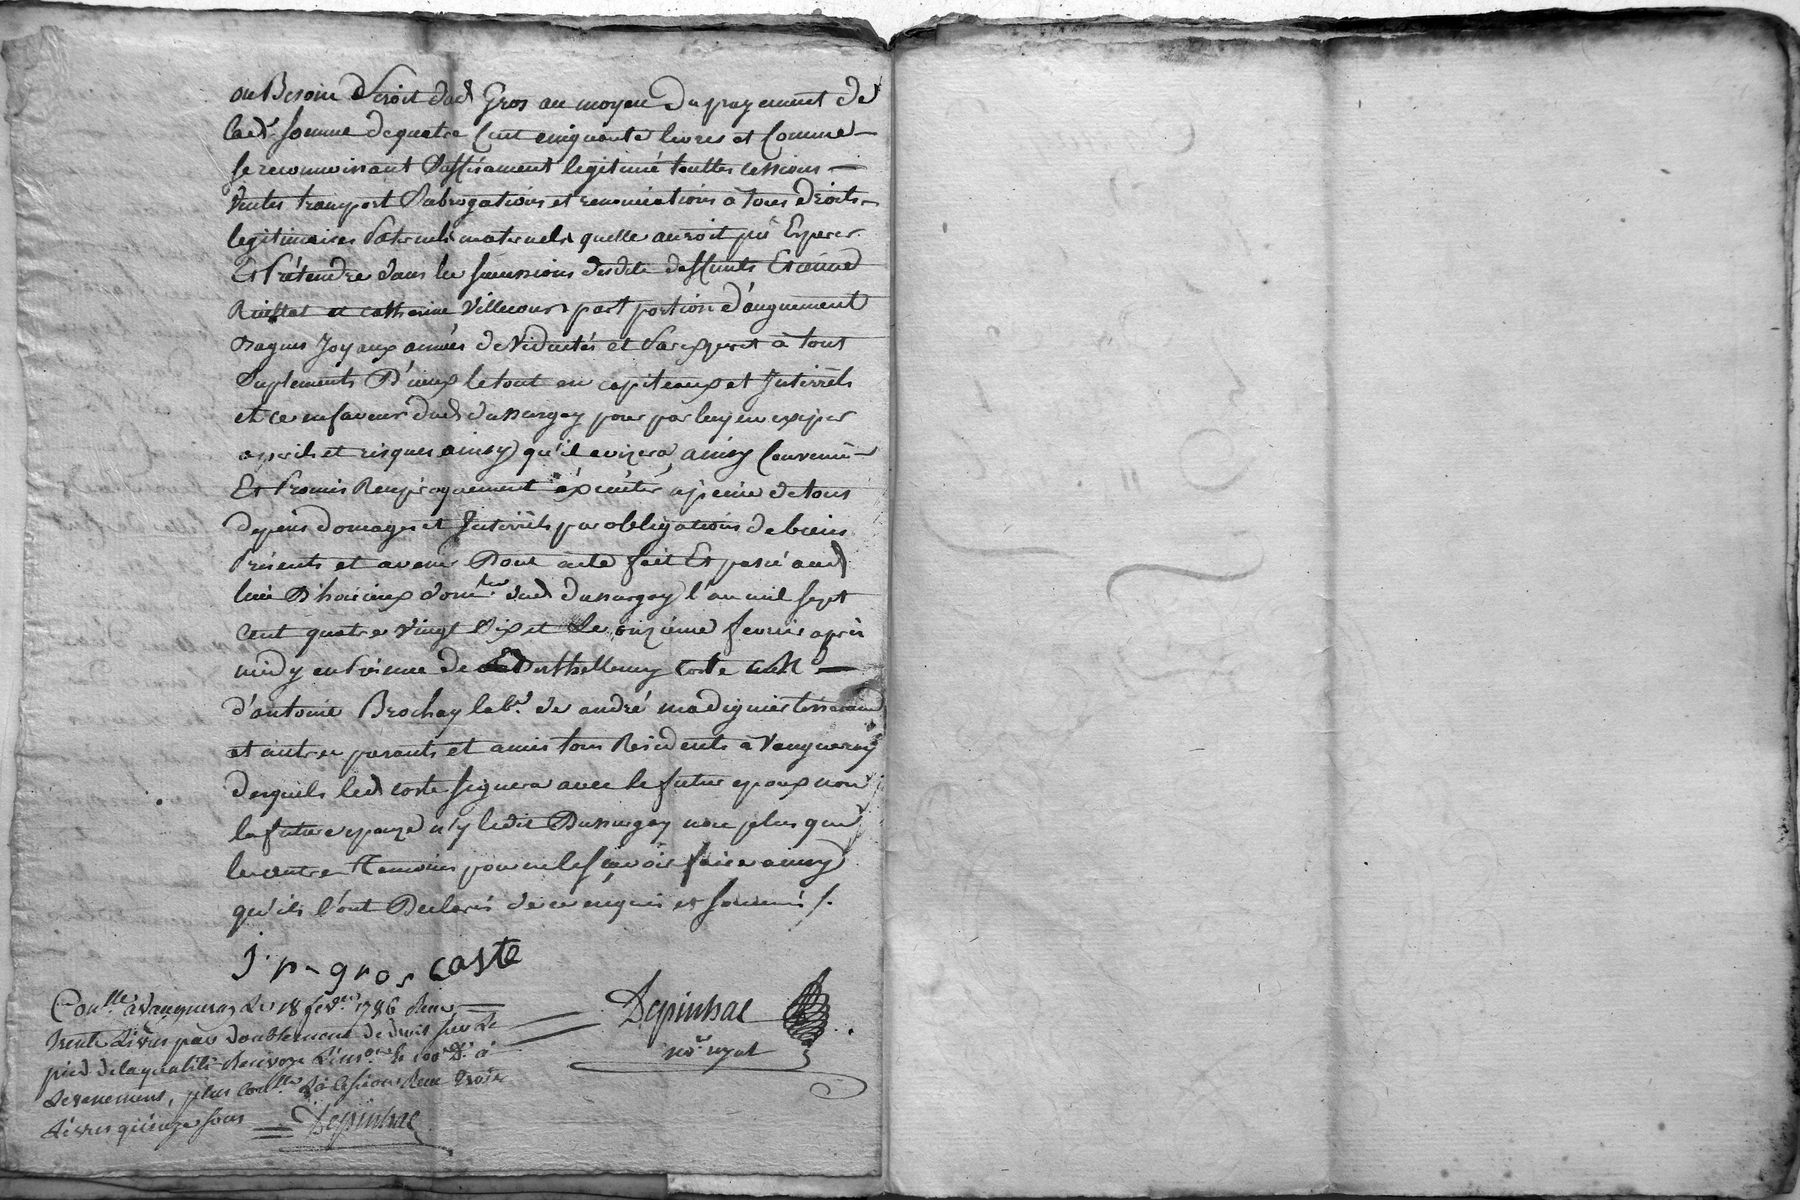 ou Besoin Seroit dud Gros au moyen du payement de
lade somme de quatre Cent cinquante livres et Comme
se reconnoissant Suffisament legitimé touttes cessions
Ventes transport Subrogations et renonciations à tous droits
legitimaires Paternels maternels quelle auroit pû Esperer
Et Prétendre dans les successions desdits deffunts Etienne
et catherine Villecourt part portion d'augument
Bagues Joyaux années de Viduités et Par exprest à tout
Suplements D'iceux le tout en capiteaux et Interrêts
et ce en faveur dud dussurgey pour par luy en exiger
a perils et risques ainsy qu'il avizera ainsy Convenu
Et Promis Reciproquement éxécuter, a peine de tous
depens domages et Interrêts par obligations de biens
Présents et avenir Dont acte fait Et passé aud
lieu D'hoirieux domlle dud dussurgey l'an mil sept
cent quatre Vingt Six et Le onzieme fevrier après
midy en Présence de Berthellemy coste
d'antoine Brochay labr. de andré madignier tisserand
et autres parants et amis tous Residents à Vaugneray
desquels led coste signera avec le futur epoux non
la future epouze n'y ledit Dussurgey non plus que
les autres temoins pour ne le sçavoir faire ainsy
qu'ils l'ont Declarés de ce enquis et sommés /.
J. p. gros coste
Conlle à vaugneray Le 18 fevr 1786 Reçu
trente Livres par doublement de droit sur le
pied de la qualité Renvoyé L'insion le 100e Dr. à
L'evenement, plus Conlle La cession Reçu trois
Livres quinze sous Depinhac
Depinhac
nore royal